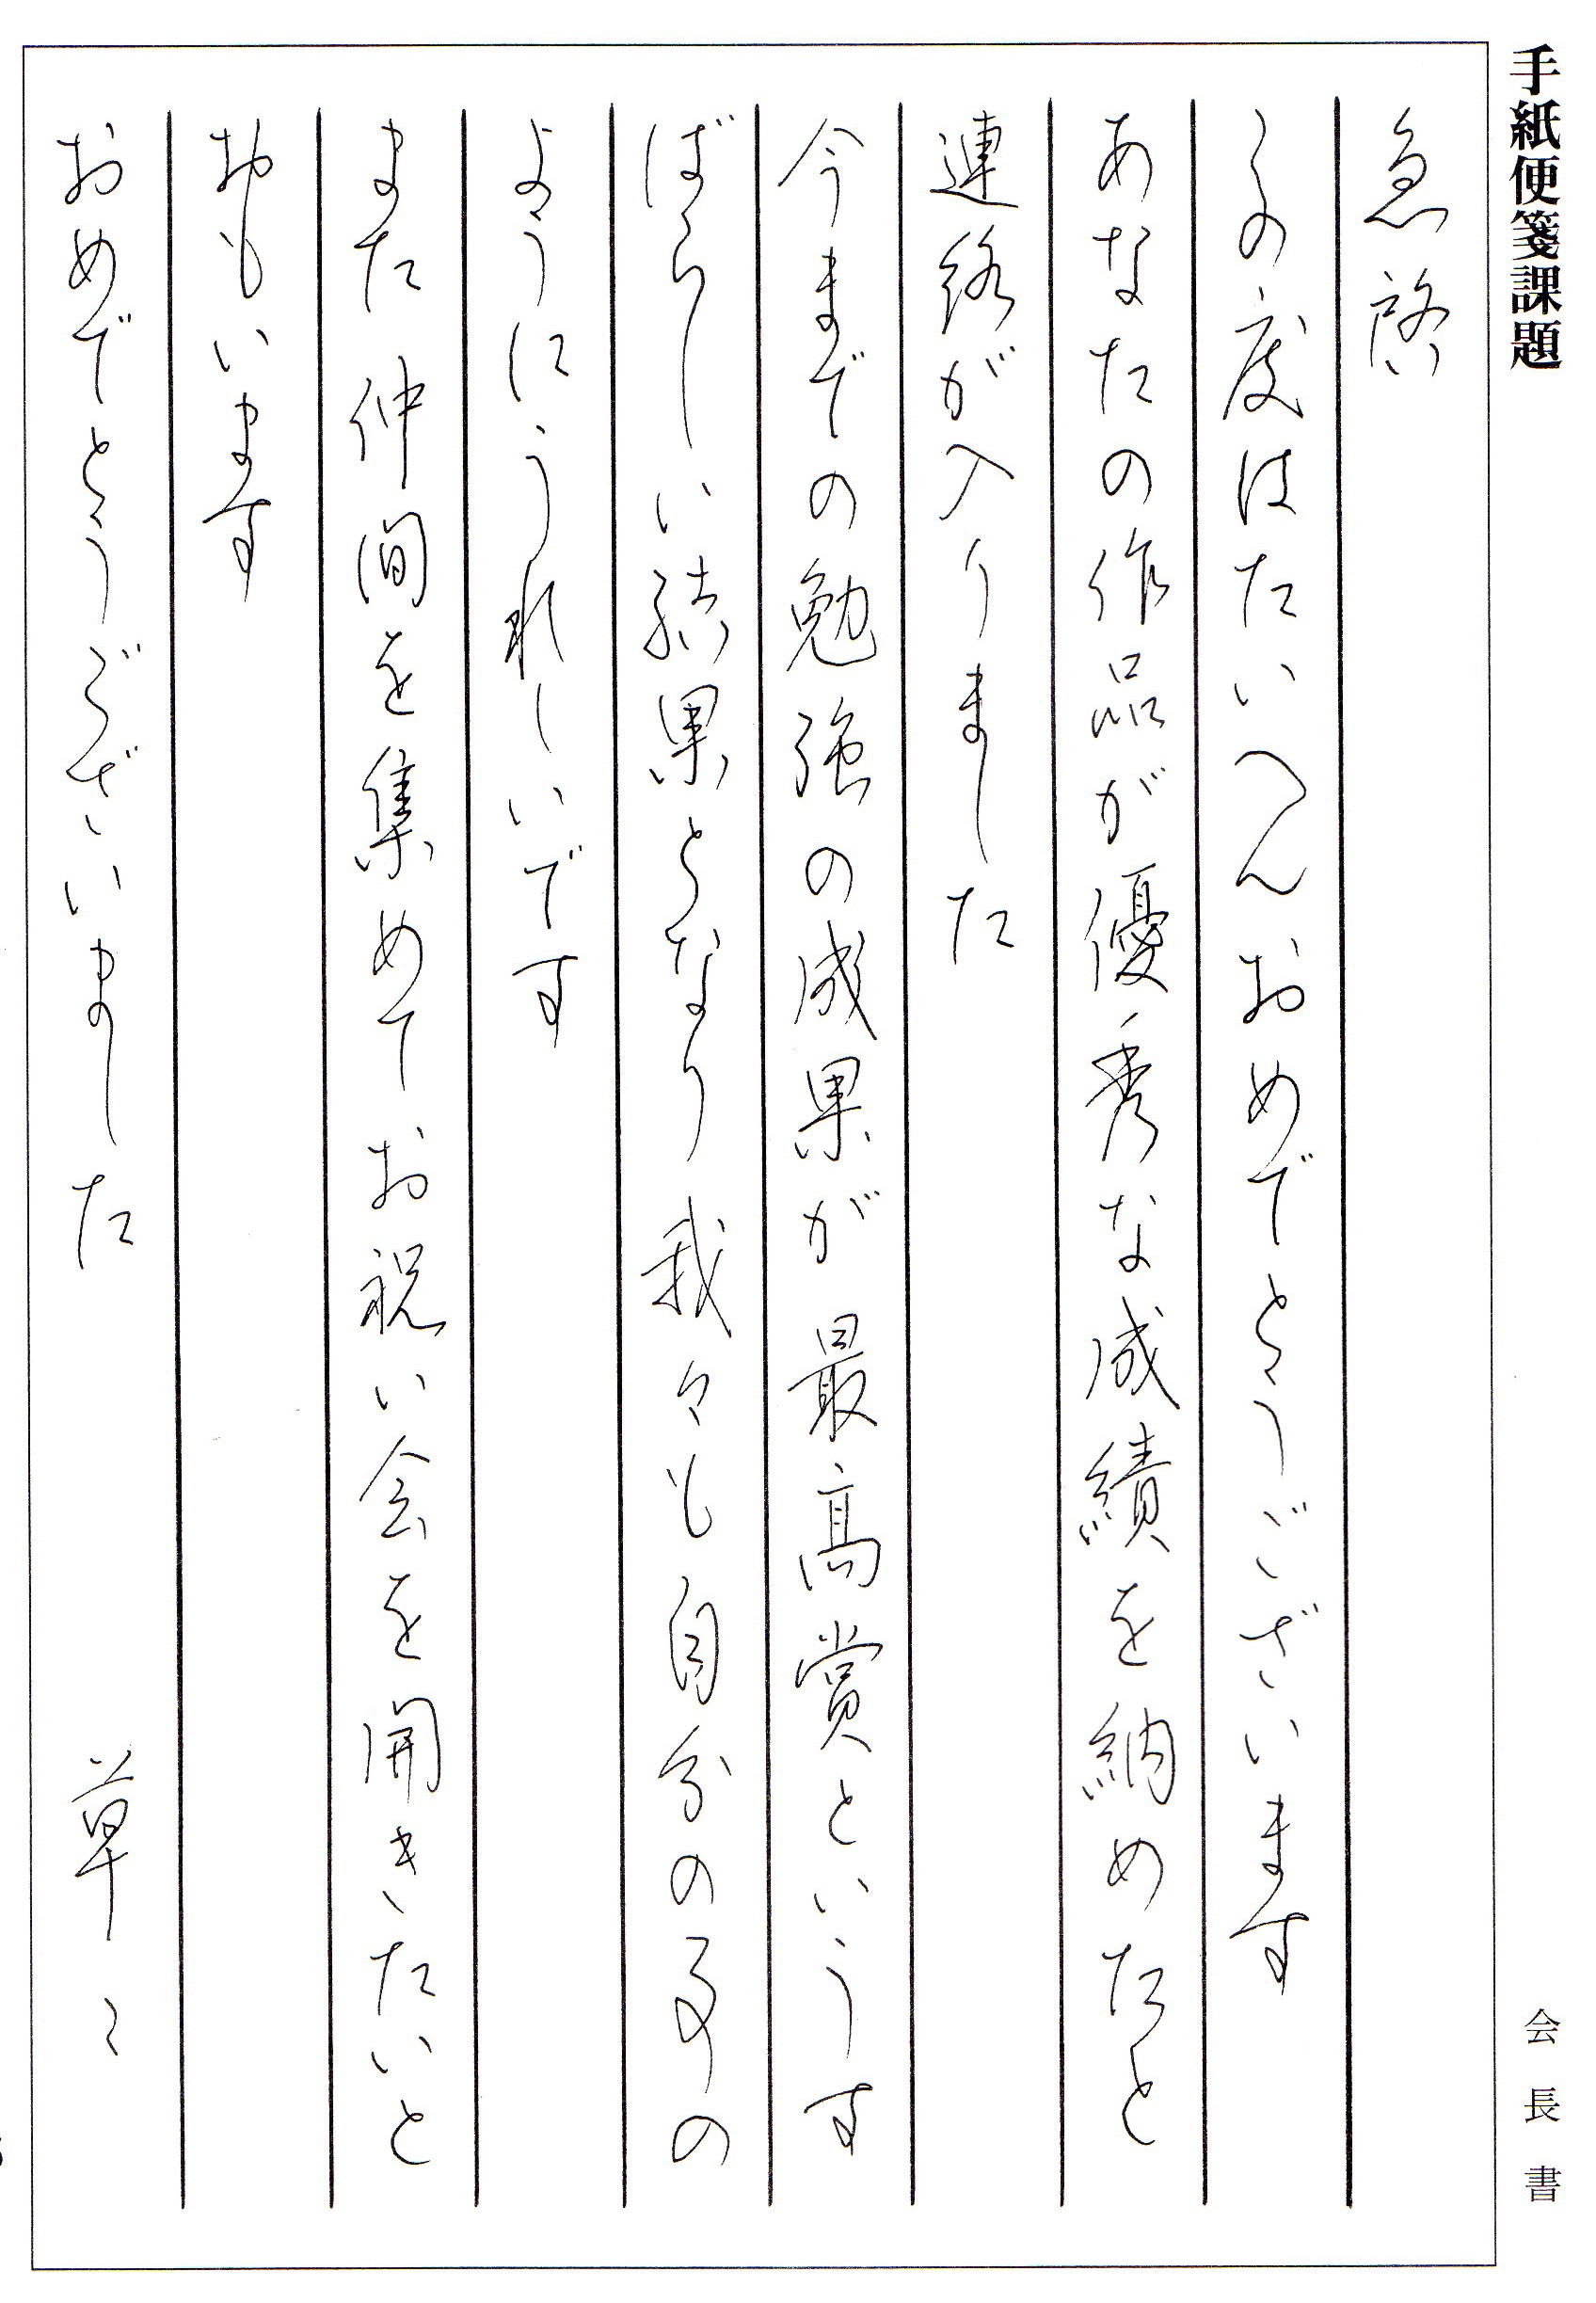 手紙便箋課題
会長書
急啓
この度はたいへんおめでとうございます
あなたの作品が優秀な成績を納めたと
連絡が入りました
今までの勉強の成果が最高賞といいうす
ばらしい結果となり我々も自分の事の
ようにうれしいです
また仲間を集めてお祝い会を開きたいと
おもいます
おめでとうございました 草々